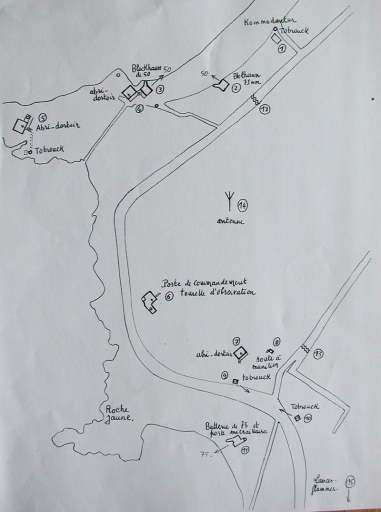 Kommodantur
Tobrouck
1
Blockhaus
de 50
50
50
Blothaus
75 mm
2
3
abri-
dortoir
4
12
5
Abri-dortoir
Tobrouck
14
antenne
Poste de Commandement
tourelle d'observation
6
7
abri-dortoir
8
soute à
munition
13
9
tobrouck
Tobrouck
10
Roche
Jaune
Batterie de 75 et
poste mitrailleuse
75
11
Lances-
flammes
15